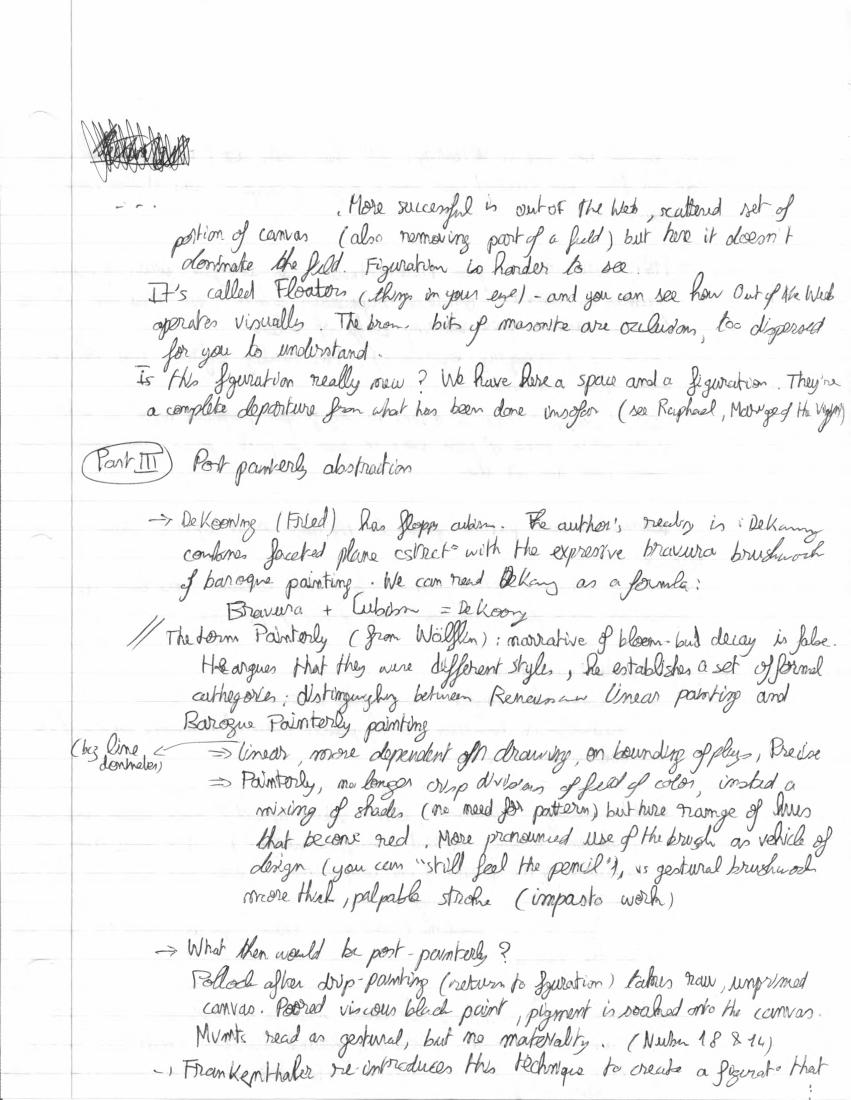 - - - . More successful is out of the Web, scattered set of
portion of canvas (also removing part of a field) but here it doesn't
dominate the field. Figuration is harder to see.
It's called Floaters (things in your eye) - and you can see how Out of the Web
operates visually. The brown bits of masonite are occlusion, too dispersed
for you to understand.
Is this figuration really new? We have here a space and a figuration. They're
a complete departure from what has been done insofar (see Raphael, Marriage of the Virgin)
Part III Post painterly abstraction
→ DeKooning (Fried) has floppy cubism. The author's reading is : DeKooning
combines faceted plane with the expressive bravura brushwork
of baroque painting. We can read DeKooning as a formula:
Bravura + Cubism = DeKoong
// The term Painterly (from Wölflin) : narrative of bloom but decay is false.
He argues that they were different styles, he establishes a set of formal
cathegories; distinguishing between Renaissance linear painting and
Baroque Painterly painting
(bcz line dominates)
⇒ linear, more dependent on drawing, on bounding of , Precise
⇒ Painterly, no longer crisp divisions of field of color, instead a
mixing of shades (no need for pattern) but here range of hues
that become red. More pronounced use of the brush as vehicle of
design (you can "still feel the pencil"), vs gestural brushwork
more thick, palpable stroke (impasto work)
→ What then would be post-painterly?
Pollock after drip-painting (return to figuration) takes raw, unprimed
canvas. Poored viscous black paint, pigment is soaked onto the canvas.
Mvmts read as gestural, but no materiality. (Number 18 & 14)
→ Frankenthaler re-introduces this technique to create a figurat° that